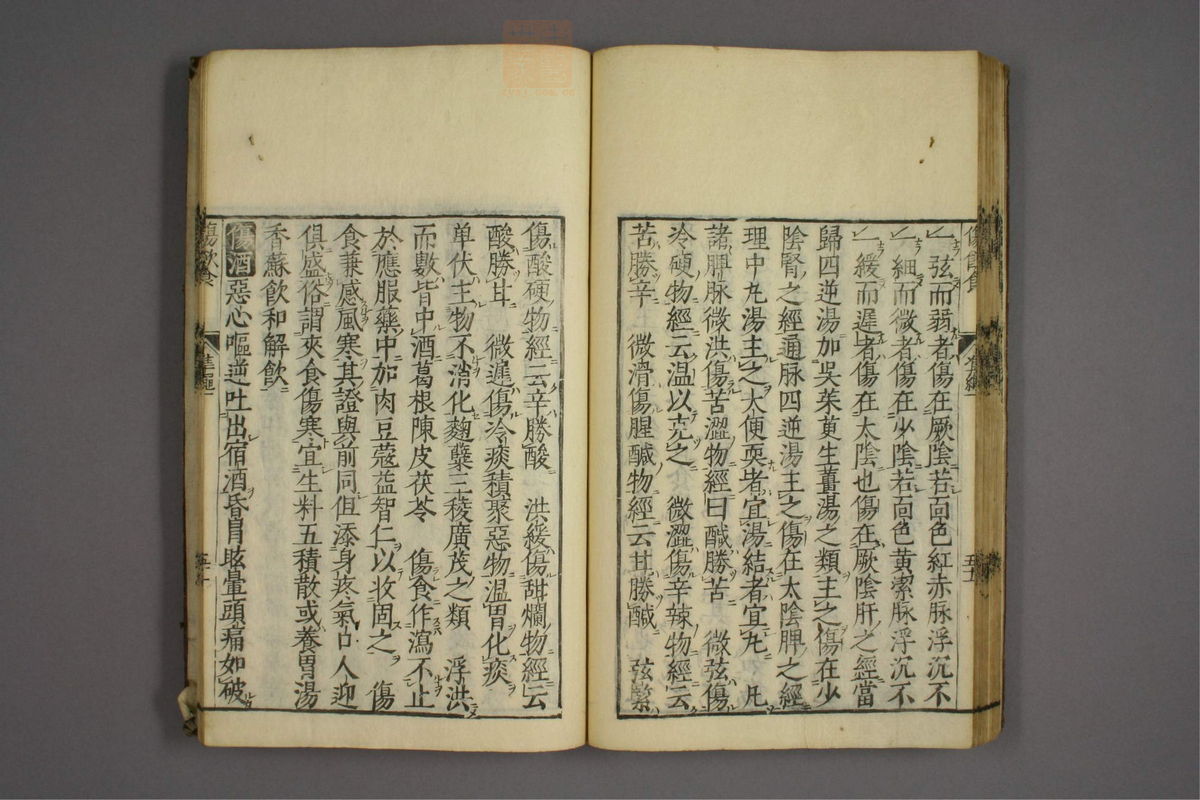 弦而弱者傷在厥陰若面色紅赤脉浮沉不
細而微者傷在少陰若面色黄潔脉浮沉不
緩而遲者傷在太陰也傷在厥陰肝之經當
歸四逆湯加吳茱萸生薑湯之類主之傷在少
陰腎之經通脉四逆湯主之傷在太陰脾之經
理中丸湯主之大便耎者宜湯結者宜丸 凡
諸脾脉微洪傷苦澀物經曰醎勝苦 微弦傷
冷硬物經云温以克之 微澀傷辛辣物經云
苦勝辛 微滑傷腥醎物經云甘勝醎 弦緊
傷酸硬物經云辛勝酸 洪緩傷甜爛物經云
酸勝甘 微遲傷冷痰積聚惡物温胃化痰
单伏主物不消化麴蘖三稜廣茂之類 浮洪
而數皆中酒葛根陳皮茯苓 傷食作瀉不止
於應服藥中加肉豆蔻益智仁以收固之 傷
食兼感風寒其證與前同但添身疼氣口人迎
俱盛俗謂夾食傷寒宜生料五積散或養胃湯
香蘇飲和解飲
傷酒 惡心嘔逆吐出宿酒昏冐眩暈頭痛如破
傷飲食